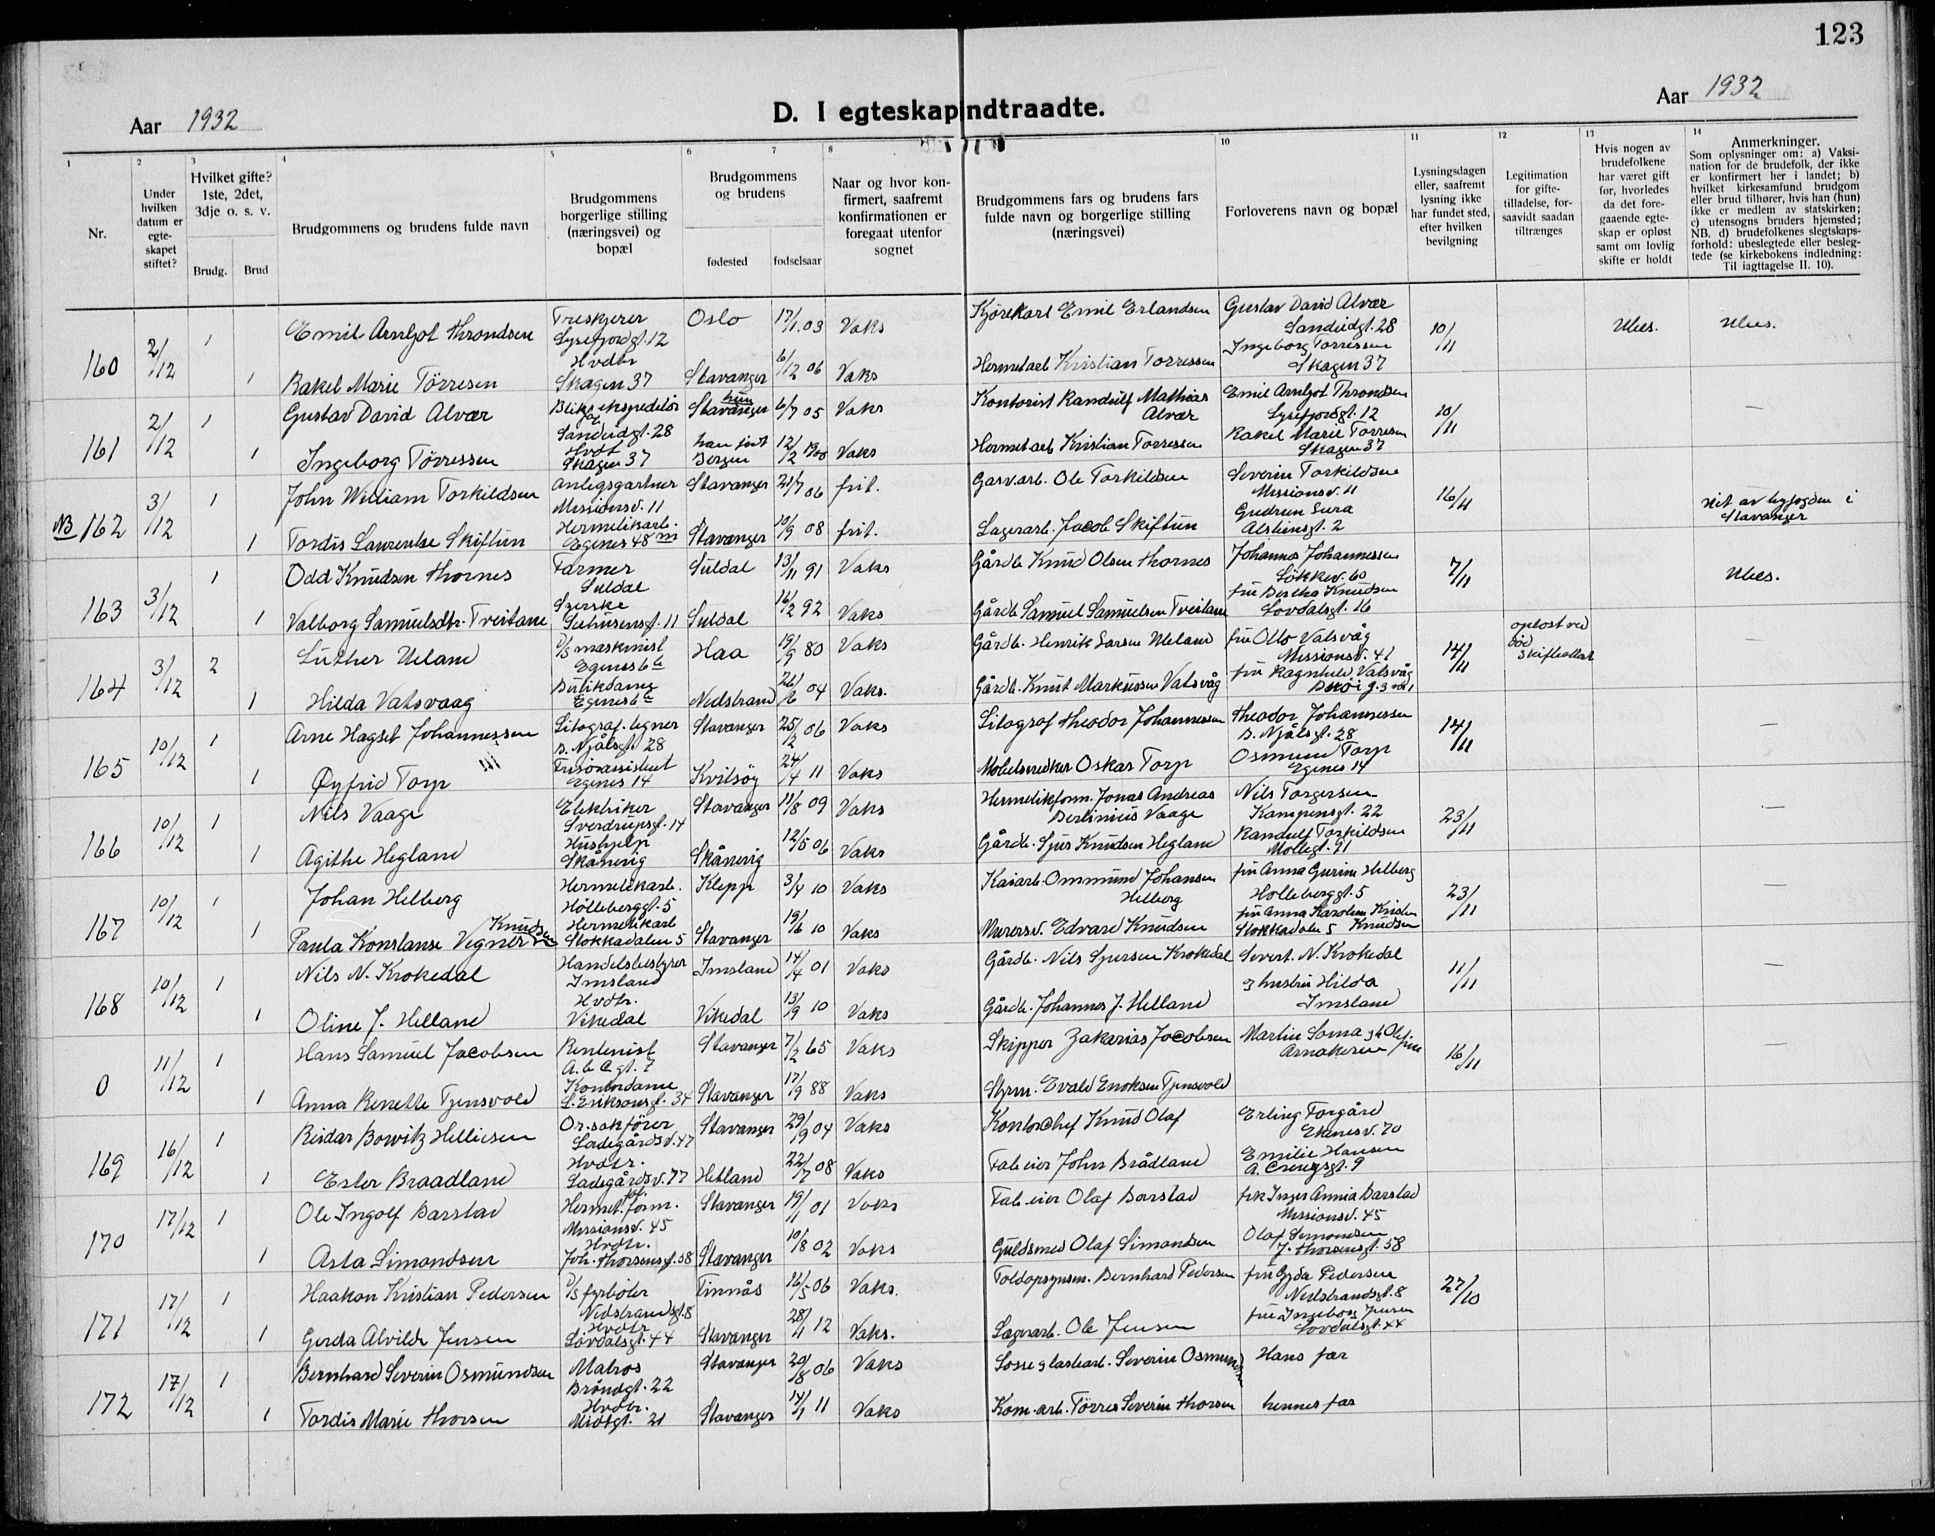 123
Aar 1932
D. I egteskap indtraadte.
Aar 1932
1
Nr.
2
Under hvilken datum er egte-skapet stiftet?
3
Hvilket gifte? 1ste, 2det, 3dje o. s. v.
Brudg.
Brud
4
Brudgommens og brudens fulde navn
5
Brudgommens borgerlige stilling (næringsvei) og bopæl
6
7
Brudgommens og brudens
fødested
fødselsaar
8
Naar og hvor kon-firmert, saafremt konfirmationen er foregaat utenfor sognet
Brudgommens fars og brudens fars fulde navn og borgerlige stilling (næringsvei)
10
Forloverens navn og bopæl
11
Lysningsdagen eller, saafremt lysning ikke har fundet sted, efter hvilken bevilgning
12
Legitimation for gifte-tilladelse, for-saavidt saadan tiltrænges
13
Hvis nogen av brudefolkene har været gift før, hvorledes da det fore-gaaende egte-skap er opløst samt om lovlig skifte er holdt
14
Anmerkninger.
Som oplysninger om: a) Vaksi-nation for de brudefolk, der ikke er konfirmert her i landet; b) hvilket kirkesamfund brudgom eller brud tilhører, hvis han (hun) ikke er medlem av statskirken; c) utensogns bruders hjemsted; NB. d) brudefolkenes slegtskaps-forhold: ubeslegtede eller besleg-tede (se kirkebokens indledning: Til iagttagelse II. 10).
160 2/12 1 Emil Arnljot Throndsen Treskjerer Lysefjordgt. 12 Oslo 17/1. 03 Vaks Kjørekarl Emil Erlandsen Gustav David Alvær Sandeidgt. 28 10/11 Ubes. Ubes.
1 Rakel Marie Tørresen Hvdtr Skagen 37 Stavanger 6/12 06 Vaks Hermetarb Kristian Torressen Ingeborg Torressen Skagen 37
161 2/12 1 Gustav David Alvær Blikk ekspeditør Sandeidgt. 28 Stavanger hun 6/7 05 Vaks Kontorist Randulf Mathias Alvær Emil Arnljot Throndsen Lysefjordgt. 12 10/11 —
1 Ingeborg Tørressen Hvdt Skagen 37 han født Bergen 12/2 1900 Vaks Hermetarb Kristian Torressen Rakel Marie Torresen Skagen 37
NB 162 3/12 1 John William Torkildsen Anlegsgartner Missionsv. 11 Stavanger 21/7 06 frit. Garvarb. Ole Torkildsen Severin Torkildsen Missionsv. 11 16/11 Vit. av byfogden i Stavanger
1 Tordis Laurentse Skiftun Hermetikarb. Egenes 48 m Stavanger 10/9 08 frit. Lagerarb. Jacob Skiftun Gudrun Lura Alsteinsgt. 2
163 3/12 1 Odd Knudsen Thornes Farmer Suldal Suldal 13/11 91 Vaks Gårdb Knud Olsen Thornes Johannes Johannessen Løkkev. 60 7/11 Ubes.
1 Valborg Samuelsdtr. Tveitane Syerske Sehusensgt. 11 Suldal 16/2 92 Vaks Gårdb Samuel Samuelsen Tveitane fru Bertha Knudsen Lovdalsgt. 16
164 3/12 2 Luther Ueland D/S maskinist Egenes 6 a Haa 19/9 80 Vaks Gårdb. Henrik Larsen Ueland fru Otto Vatsvåg Missionsv. 41 14/11 opløst ved død skifteattest —
1 Hilda Vatsvaag Butikdame Egenes 6 a Nedstrand 26/6 04 Vaks. Gårdb. Knut Markussen Vatsvåg fru Ragnhild Vatsvåg
165 10/12 1 Arne Hagset Johannessen Litograf. tegner B. Njålsgt. 28 Stavanger 25/2 06 Vaks Litograf Theodor Johannessen Theodor Johannessen B. Njålsgt. 28 14/11 —
1 Øyfrid Torp Frisørassistent Egenes 14 Kvitsøy 24/4 11 Vaks Møbelsnedker Oskar Torp Osmund Torp Egenes 14
166 10/12 1 Nils Vaage Elektriker Sverdrupsgt. 14 Stavanger 11/8 09 Vaks Hermetikform. Jonas Andreas Berlinius Vaage Nils Torgersen Kampensgt. 22 23/11 —
1 Agithe Hegland Hushjelp Skånevig Skånevig 12/5 06 Vaks Gårdb. Sjur Knudsen Hegland Randulf Torkildsen Møllegt. 91
167 10/12 1 Johan Helberg Hermetikarb. Hollebergsgt. 5 Klepp 3/4 10 Vaks Kaiarb. Ommund Johansen Helberg fru Anna Gurine Helberg Hollebergsgt. 5 23/11 —
1 Paula Konstanse Vegner Knudsen Hermetikarb Stokkadalen 5 Stavanger 19/6 10 Vaks Murersv. Edvard Knudsen fru Anna Karoline Knudsen Stokkadalen 5
168 10/12 1 Nils N. Krokedal Handelsbestyrer Imsland Imsland 14/4 01 Vaks Gårdb. Nils Sjursen Krokedal Severt. N. Krokedal 11/11 —
1 Oline J. Helland Hvdtr. Vikedal Vikedal 13/9 10 Vaks Gårdb. Johannes J. Helland og hustru Hilda Imsland
0 11/12 1 Hans Samuel Jacobsen Rentenist A.b.c gt. 7 Stavanger 7/2 65 Vaks Skipper Zakarias Jacobsen Martin Soma 16/11 —
1 Anna Renette Tjensvold Kontordame L. Eriksonsgt. 34 Stavanger 17/9 88 Vaks Styrm. Evald Enoksen Tjensvold
169 16/12 1 Reidar Bowitz Helliesen Or. sakfører Ladegårdsv. 47 Stavanger 29/9 04 Vaks Kontorchef Knud Olaf Erling Torgård Ekenesv. 70
1 Ester Braadland Hvdtr. Ladegårdsv. 77 Hetland 22/7 08 Vaks Fab. eier John Brådland Emilie Hansen
170 17/12 1 Ole Ingolf Barstad Hermet. form. Missionsv. 45 Stavanger 19/11 01 Vaks Fab. eier Olaf Barstad frk Inger Annia Barstad Missionsv. 45
1 Asta Simondsen Hvdtr. Joh. Thorsensgt. 58 Stavanger 10/8 02 Vaks Guldsmed Olaf Simondsen Olaf Simondsen J. Thorsensgt. 58
171 17/12 1 Haakon Kristian Pedersen D/S fyrbøter Nedstrandsgt. 8 Finnås 16/5 06 Vaks. Toldopsynsm. Bernhard Pedersen fru Gyda Pedersen Nedstrandsgt. 8 27/10
1 Gerda Alvilde Jensen Hvdtr Løvdalsgt. 44 Stavanger 28/1 12 Vaks. Lagerarb. Ole Jensen fru Ingeborg Jensen Lovdalsgt. 44
172 17/12 1 Bernhard Severin Osmundsen Matros Brøndgt. 22 Stavanger 20/8 06 Vaks Losse og lastearb. Severin Osmundsen Hans far
1 Tordis Marie Thorsen Hvdtr. Midtgt. 21 Stavanger 14/1 11 Vaks Kom. arb. Tørres Severin Thorsen hennes far